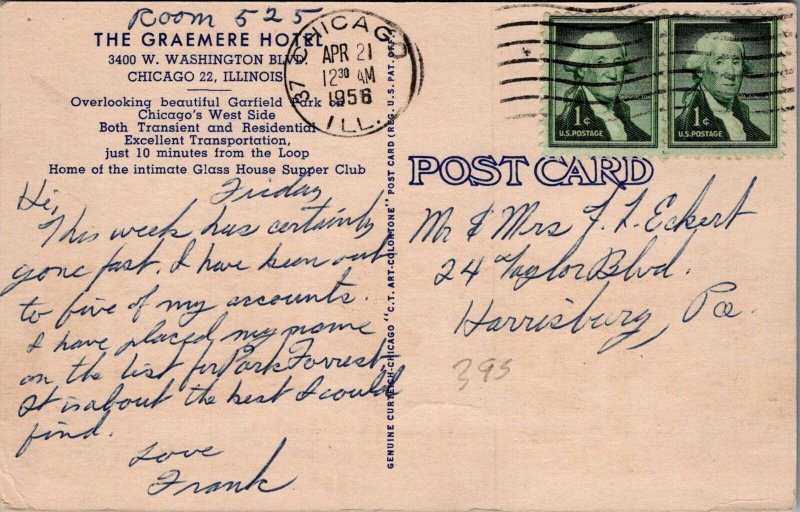 Room 525
THE GRAEMERE HOTEL
3400 W. WASHINGTON BLVD.
CHICAGO 22, ILLINOIS
Overlooking beautiful Garfield Park on
Chicago's West Side
Both Transient and Residential
Excellent Transportation,
just 10 minutes from the Loop
Home of the intimate Glass House Supper Club
Friday
Hi,
This week has certainly
gone fast. I have been out
to five of my accounts.
I have placed my name
on the list for Park Forrest
It is about the best I could
find.
Love
Frank
GENUINE CURTEICH-CHICAGO "C.T. ART-COLORTONE" POST CARD (REG. U.S. PAT. OFF.)
CHICAGO
37
APR 21
12 30 AM
1956
ILL.
1¢
U.S. POSTAGE
1¢
U.S. POSTAGE
POST CARD
Mr & Mrs F. L. Eckert
24 Taylor Blvd.
Harrisburg, Pa.
395